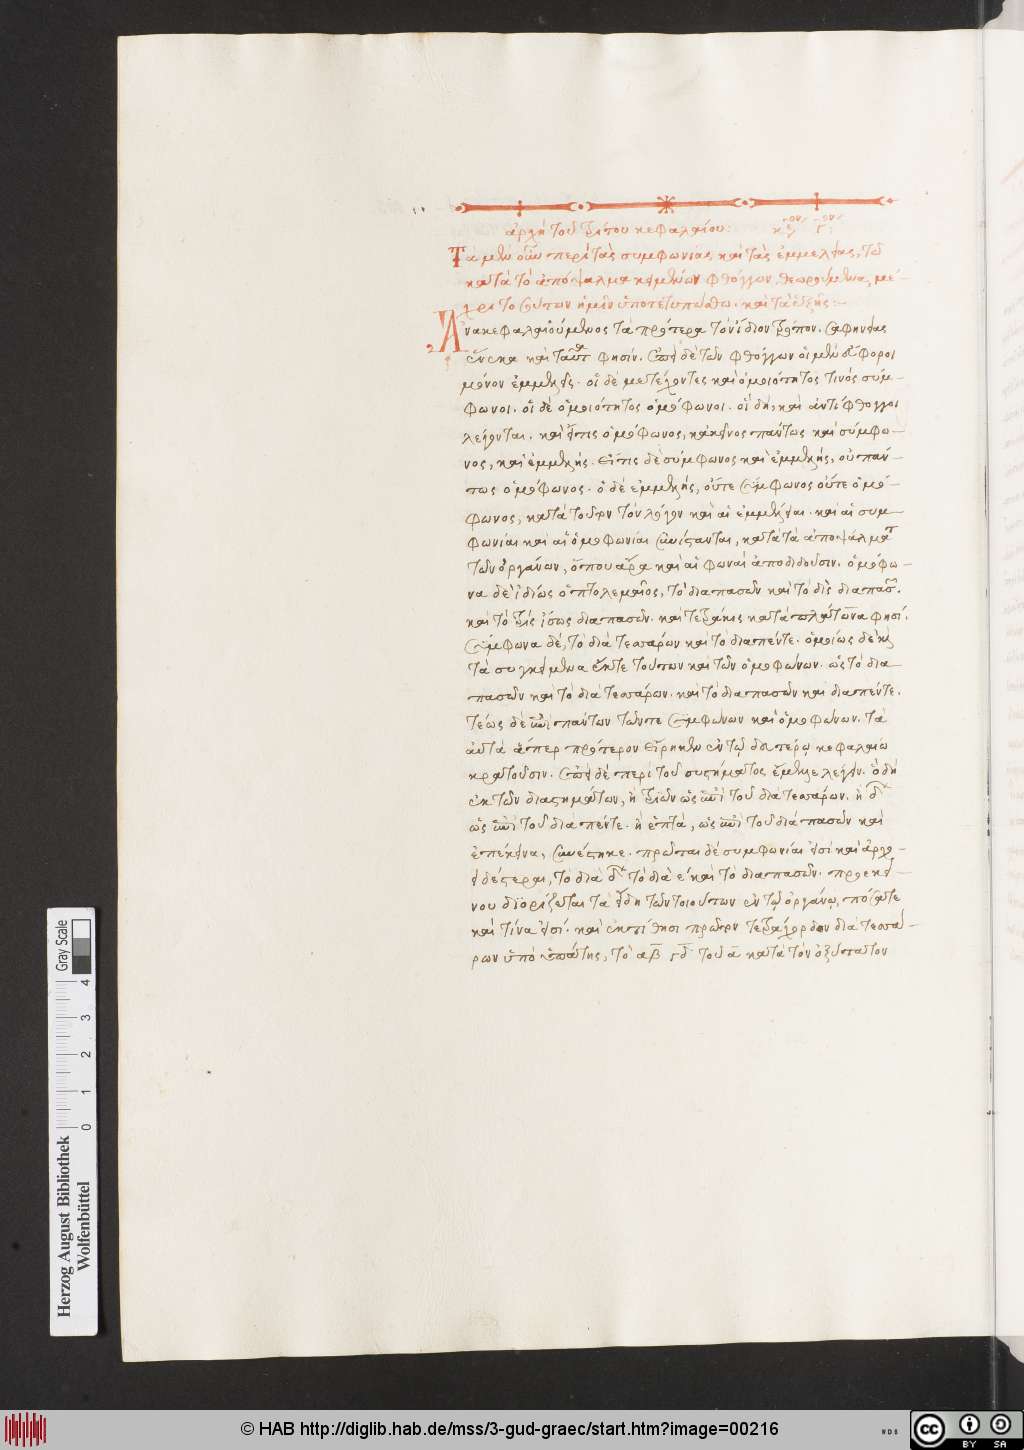 ἀρχὴ τοῦ τρίτου κεφαλαίου:
Τὰ μὲν οὖν περὶ τὰς συμφωνίας καὶ τὰς ἐμμελείας, τῶν
κατὰ τὸ ἀπόψαλμα κειμένων φθόγγων θεωρούμενα, μέ-
χρι τοσούτων ἡμῖν ὑποτετυπώσθω. καὶ τὰ ἑξῆς:
Ἀνακεφαλαιούμενος τὰ πρότερα τὸν ἴδιον τρόπον. σαφηνείας
ἕνεκα καὶ ταῦτα φησίν. ἐπεὶ δὲ τῶν φθόγγων οἱ μὲν διάφοροι
μόνον ἐμμελεῖς. οἱ δὲ μετέχοντες καὶ ὁμοιότητος τινὸς σύμ-
φωνοι. οἱ δὲ ὁμοιότητος ὁμόφωνοι. οἱ δὴ καὶ ἀντίφθογγοι
λέγονται. καὶ εἴ τις ὁμόφωνος, κἀκεῖνος πάντως καὶ σύμφω-
νος, καὶ ἐμμελής. εἴ τις δὲ σύμφωνος καὶ ἐμμελής, οὐ πάν-
τως ὁμόφωνος. ὁ δὲ ἐμμελής, οὔτε σύμφωνος οὔτε ὁμό-
φωνος, κατὰ τοῦτον τὸν λόγον καὶ αἱ ἐμμέλειαι. καὶ αἱ συμ-
φωνίαι καὶ αἱ ὁμοφωνίαι συνίστανται, κατὰ τὰ ἀποψάλματα
τῶν ὀργάνων, ὅπου ἄρα καὶ αἱ φωναὶ ἀποδιδοῦσιν. ὁμόφω-
να δὲ ἰδίως ὁ πτολεμαῖος, τὸ διαπασῶν καὶ τὸ δὶς διαπασῶν.
καὶ τὸ τρὶς ἴσως διαπασῶν. καὶ τετράκις κατὰ πλάτωνα φησί.
σύμφωνα δέ, τὸ διὰ τεσσάρων καὶ τὸ διαπέντε. ὁμοίως δὲ καὶ
τὰ συγκείμενα ἔκ τε τούτων καὶ τῶν ὁμοφώνων. ὡς τὸ δια-
πασῶν καὶ τὸ διὰ τεσσάρων. καὶ τὸ διαπασῶν καὶ διαπέντε.
τέως δὲ ἐπὶ πάντων τῶν τε συμφώνων καὶ ὁμοφώνων. τὰ
αὐτὰ ἅπερ πρότερον εἰρήκειν ἐν τῷ δευτέρῳ κεφαλαίῳ
κρατοῦσιν. ἐπεὶ δὲ περὶ τοῦ συστήματος ἔμελλε λέγειν. ὃ δὴ
ἐκ τῶν διαστημάτων, ἢ τριῶν ὡς ἐπὶ τοῦ διὰ τεσσάρων. ἢ δ
ὡς ἐπὶ τοῦ διαπέντε. ἢ ἑπτὰ, ὡς ἐπὶ τοῦ διαπασῶν καὶ
ἐπέκεινα, συνέστηκε. πρῶται δὲ συμφωνίαι εἰσὶ καὶ ἀρχο-
ειδέστεραι, τὸ διὰ δ τὸ διὰ ε καὶ τὸ διαπασῶν. προεκεί-
νου διορίζεται τὰ εἴδη τῶν τοιούτων ἐν τῷ ὀργάνῳ, πόσα τε
καὶ τίνα εἰσί. καὶ ἐκτίθησι πρῶτον τετράχορδον διὰ τεσσά-
ρων ὑπὸ ὑπάτης, τὸ αβ γδ τοῦ α κατὰ τὸν ὀξύτατον
Herzog August Bibliothek
Wolfenbüttel
0 1 2 3 4
Gray Scale
© HAB http://diglib.hab.de/mss/3-gud-graec/start.htm?image=00216
cc BY SA